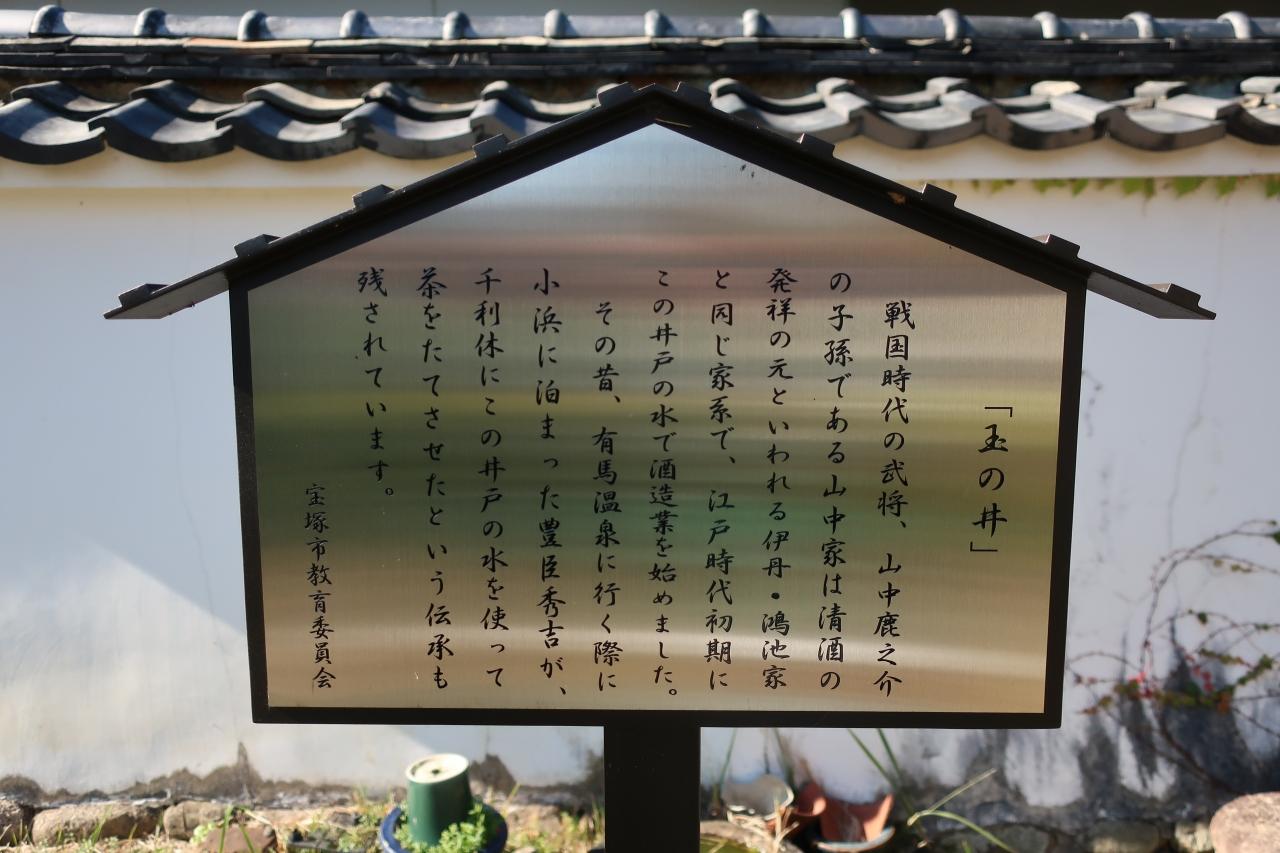 「玉の井」
戦国時代の武将、山中鹿之介
の子孫である山中家は清酒の
発祥の元といわれる伊丹・鴻池家
と同じ家系で、江戸時代初期に
この井戸の水で酒造業を始めました。
その昔、有馬温泉に行く際に
小浜に泊まった豊臣秀吉が、
千利休にこの井戸の水を使って
茶をたてさせたという伝承も
残されています。
宝塚市教育委員会